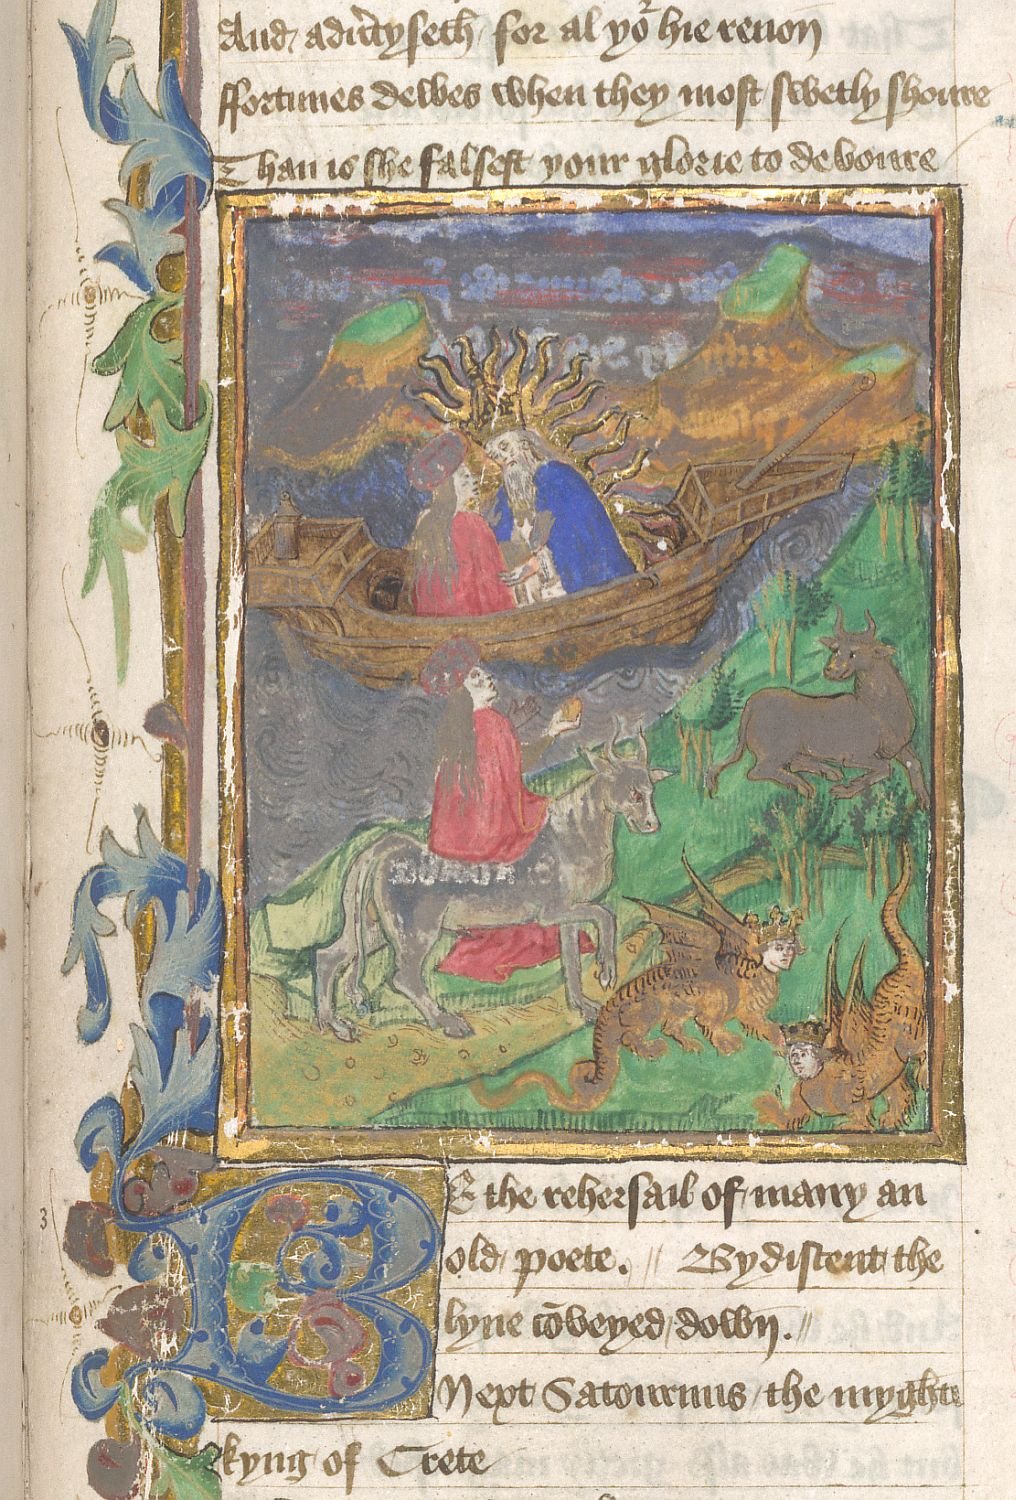 And adv͛tyseth for al yoʳ hie renoū
ffortunes dewes when they most swetly shoure
Than is she falsest your glorie to devoure
BE the rehersail of many an
old poete. // By discent the
lyne cōveyed down. //
Next Satournus the myghti
kyng of Crete